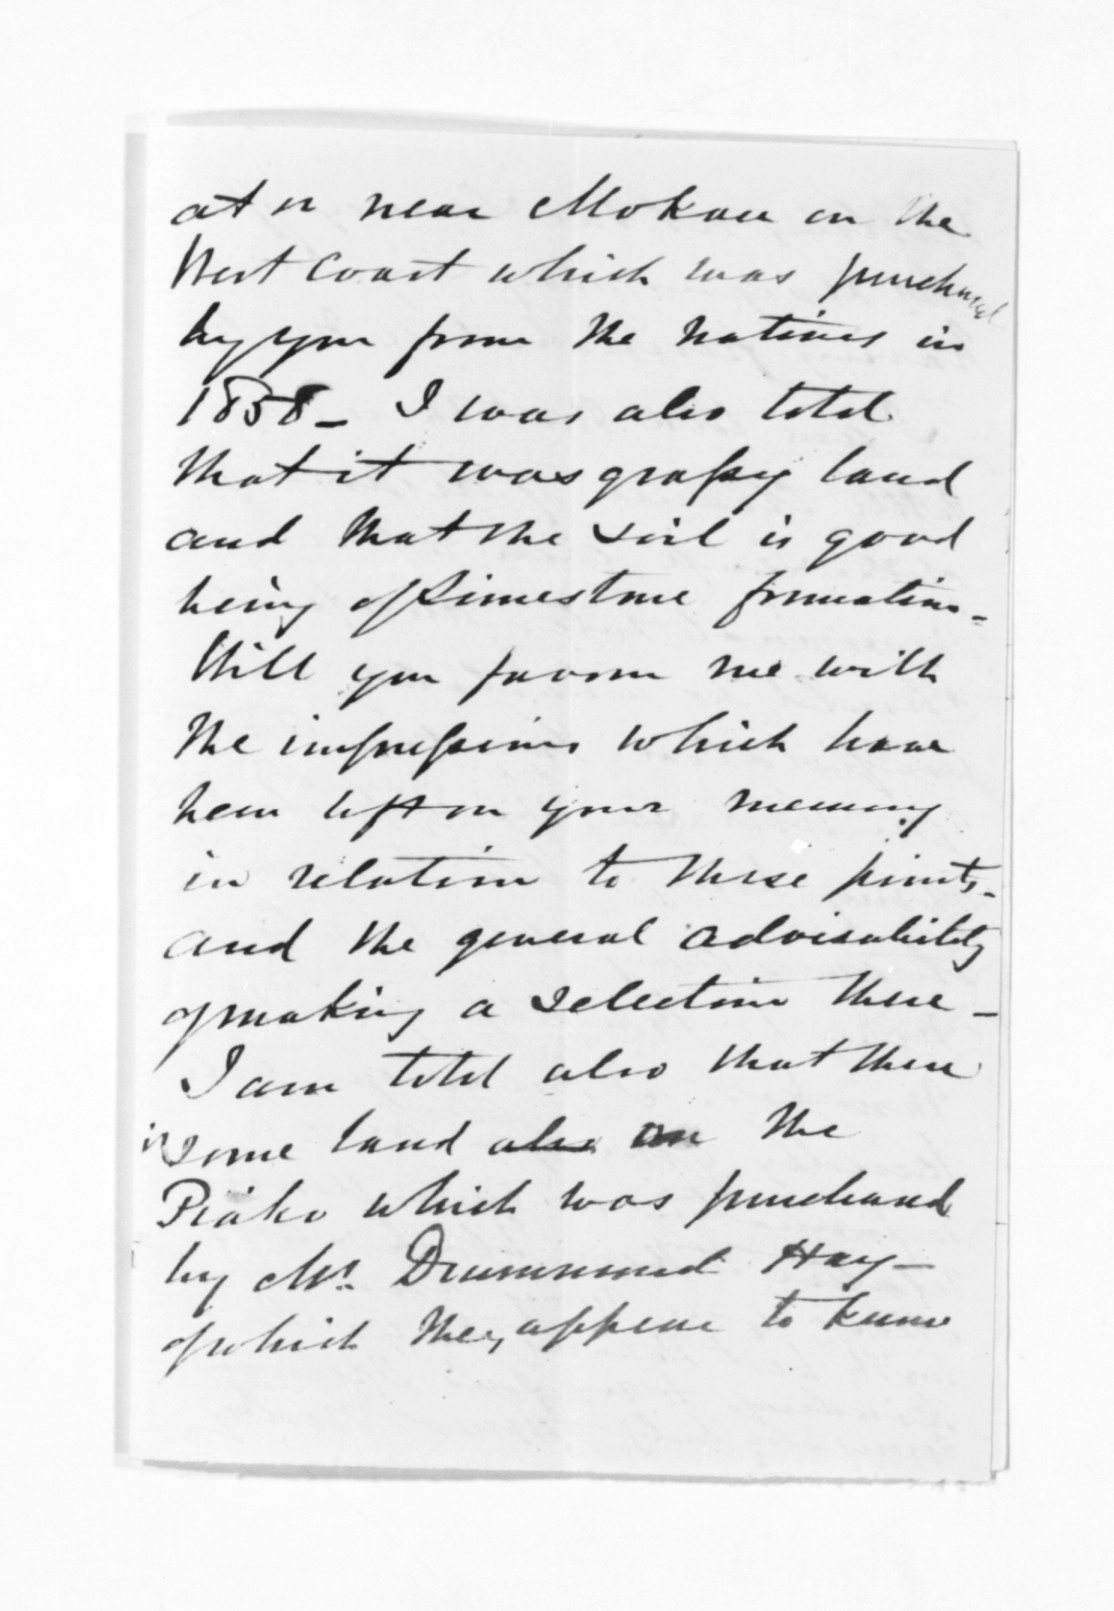 at or near Mokau on the
West Coast which was purchased
by you from the Natives in
1858 - I was also told
that it was grassy land
and that the soil is good
being of limestone formation -
Will you favour me with
the impressions which have
been left on your memory
in relation to these points -
and the general advisability
of making a selection there -
I am told also that there
is some land also on the
Piako which was purchased
by Mr. Drummond Hay -
of which they appear to know